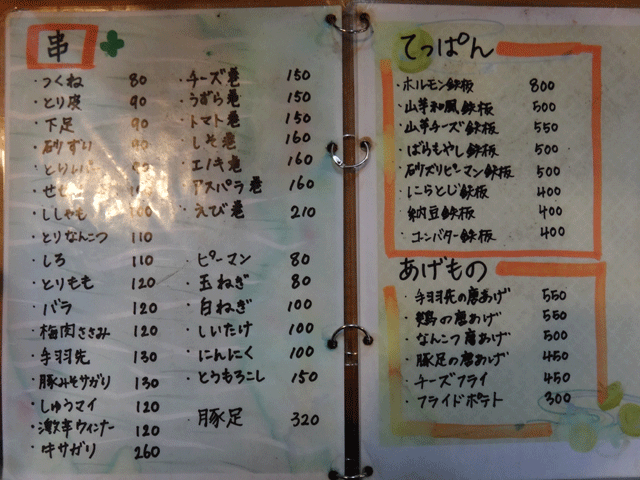 串
・つくね 80
・とり皮 90
・下足 90
・砂ずり 90
・とりレバー
・せせり
・ししゃも 100
・とりなんこつ 110
・しろ 110
・とりもも 120
・バラ 120
・梅肉ささみ 120
・手羽先 130
・豚みそサガリ 130
・しゅうマイ 120
・激辛ウィンナー 120
・牛サガリ 260
・チーズ巻 150
・うずら巻 150
・トマト巻 150
・しそ巻 160
・エノキ巻 160
・アスパラ巻 160
・えび巻 210
・ピーマン 80
・玉ねぎ 80
・白ねぎ 100
・しいたけ 100
・にんにく 100
・とうもろこし 150
・豚足 320
てっぱん
・ホルモン鉄板 800
・山芋和風鉄板 500
・山芋チーズ鉄板 550
・ばらもやし鉄板 500
・砂ズリピーマン鉄板 500
・にらとじ鉄板 400
・納豆鉄板 400
・コンバター鉄板 400
あげもの
・手羽先の唐あげ 550
・鶏の唐あげ 550
・なんこつ唐あげ 500
・豚足の唐あげ 450
・チーズフライ 450
・フライドポテト 300